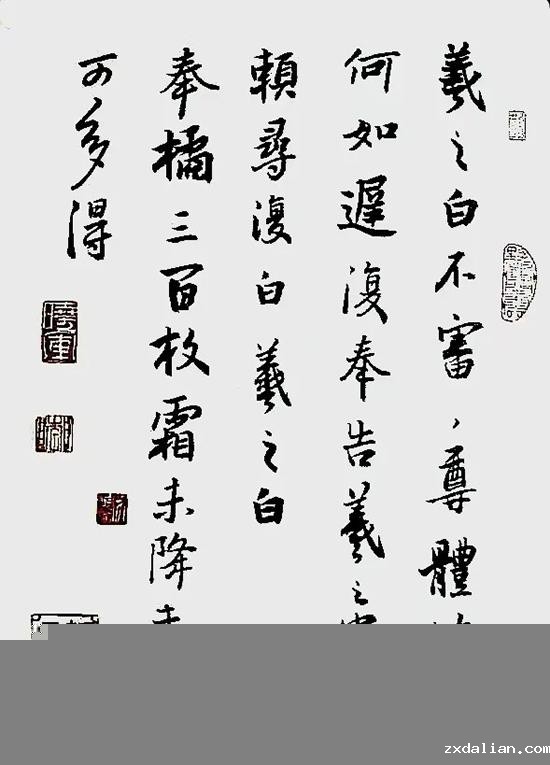 羲之白不審、尊體
何如遲復奉告羲之
賴尋復白羲之白
奉橘三百枚霜未降未
可多得
zxdalian.com